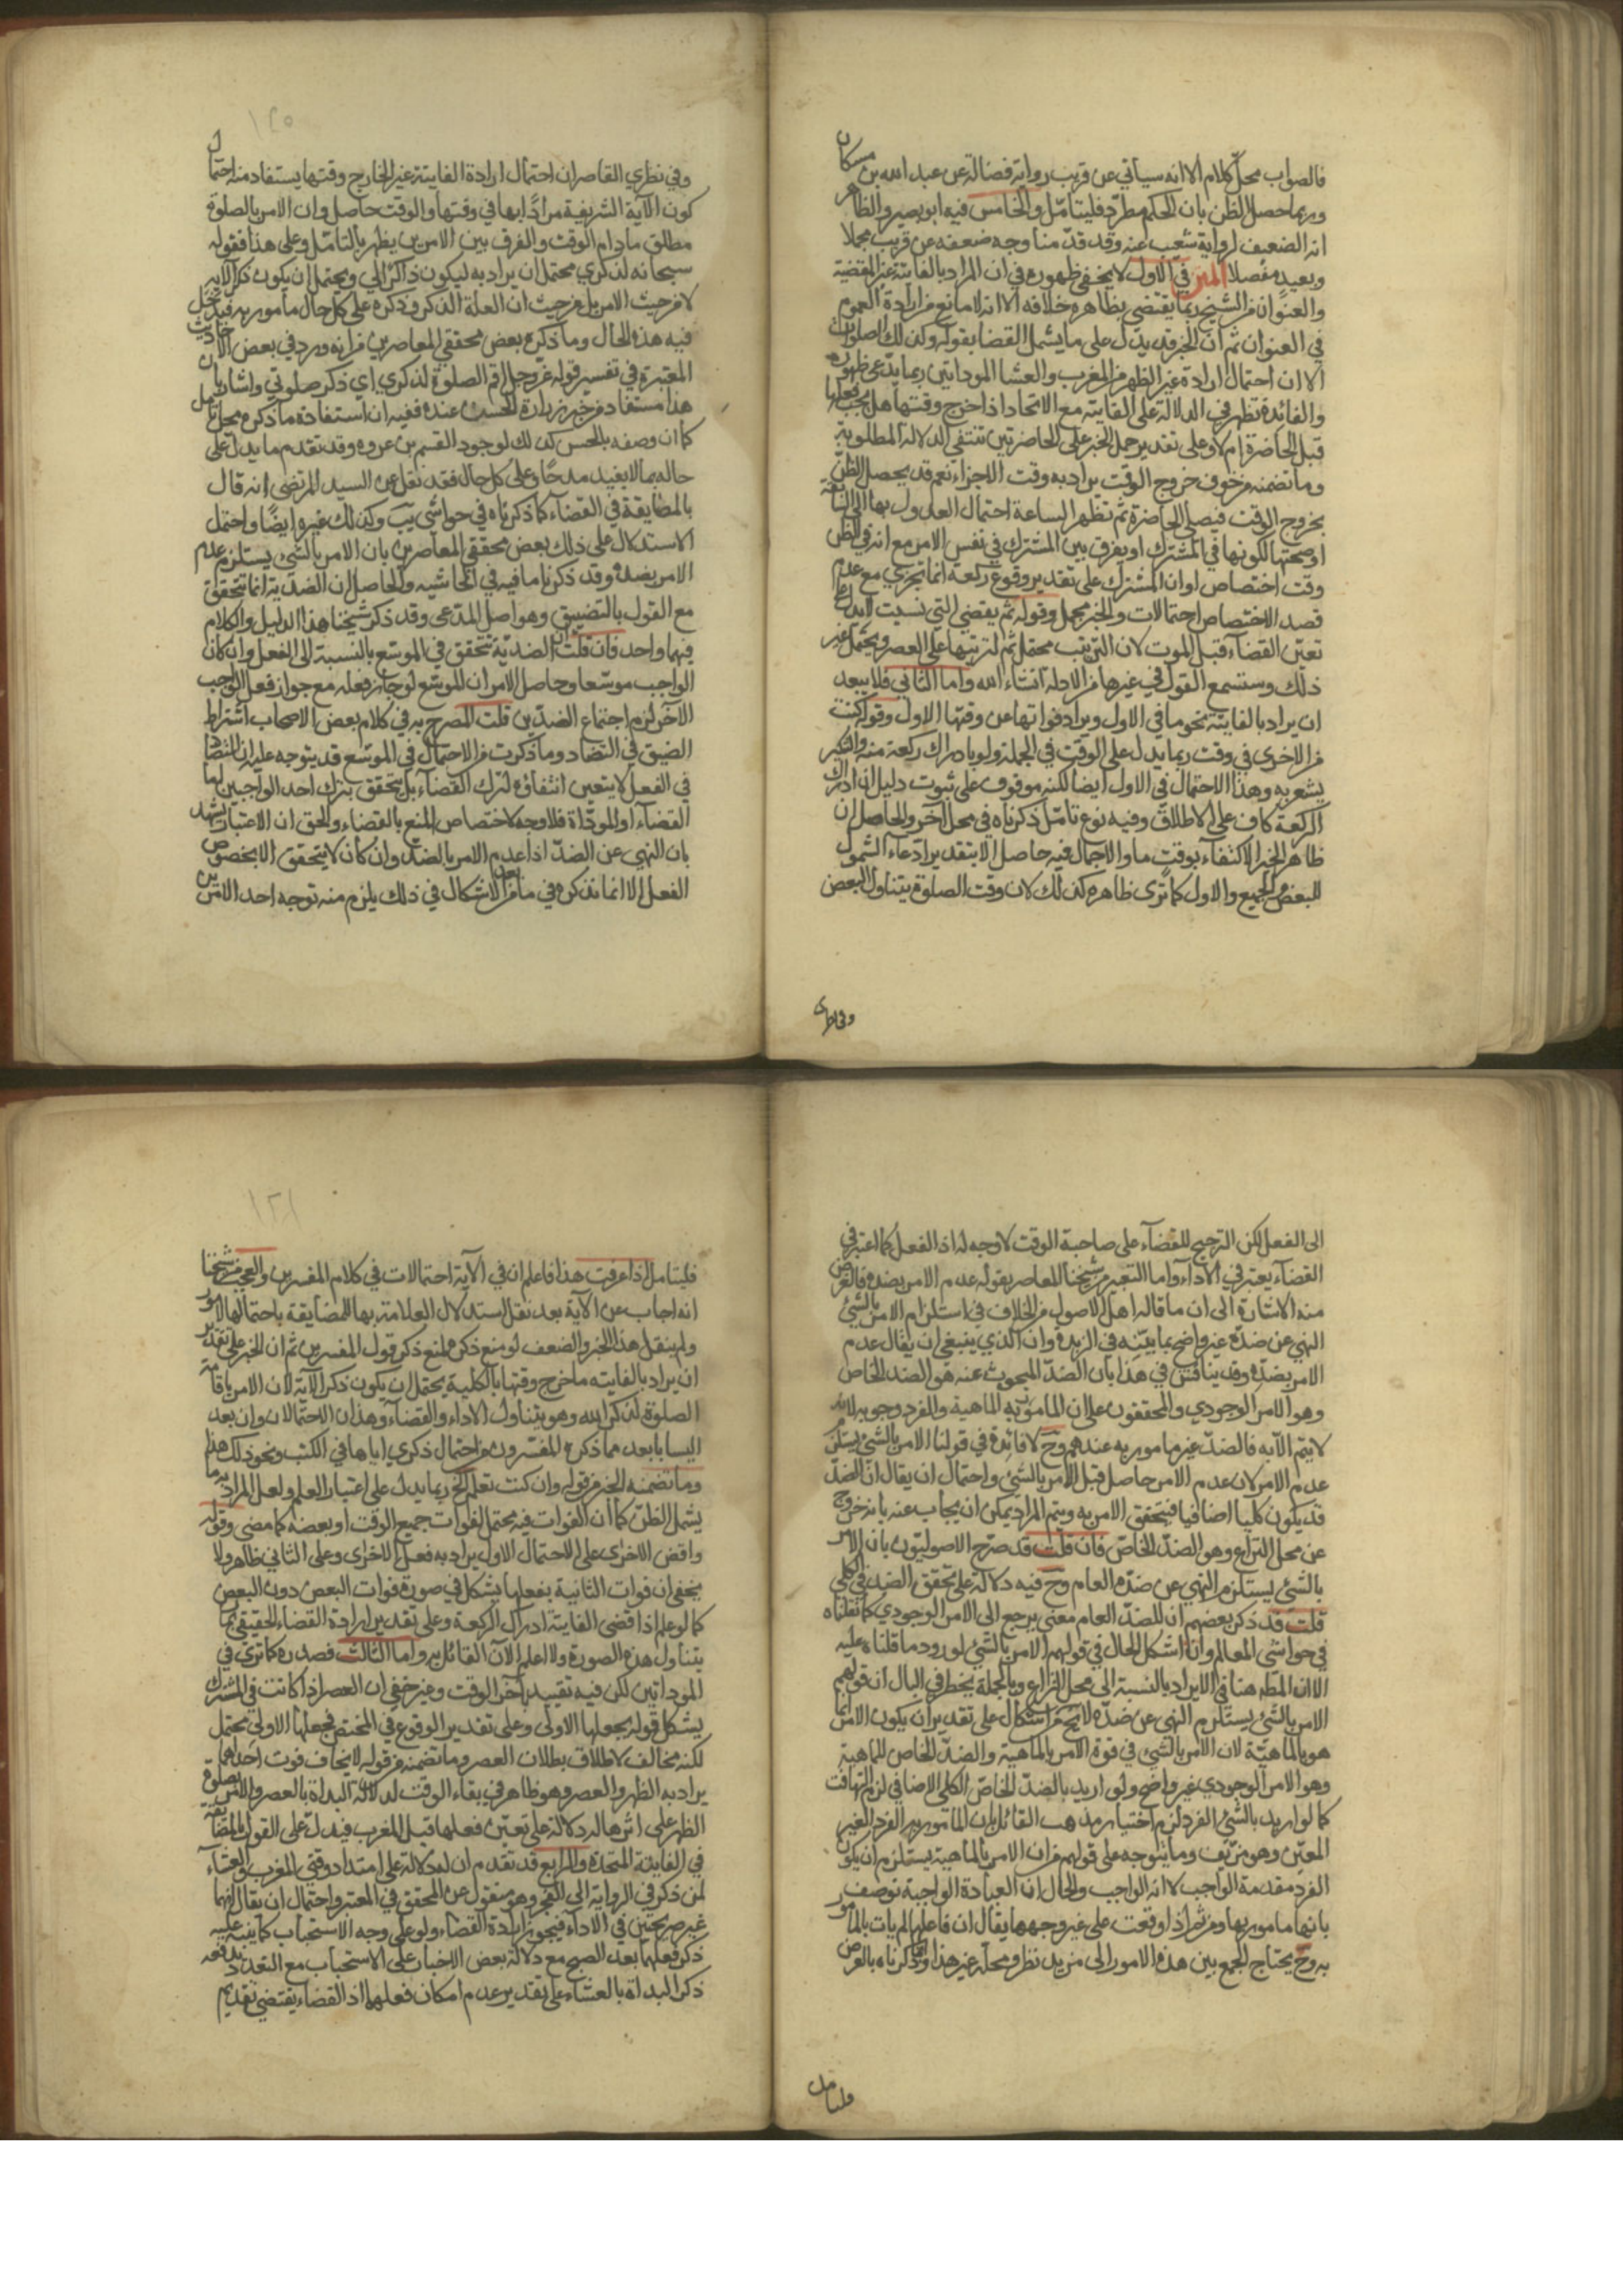 فالصواب محل كلام الا انه سيأتي عن قريب رواية فضالة عن عبد الله بن مسكان
وربما حصل الظن بان الحكم مطرد فليتامل والخامس فيه ابو بصير والظاهر
انه الضعيف لرواية شعيب عنه وقد قدمنا وجه ضعفه عن قريب مجملا
وبعيد مفصلا المتن في الاول لا يخفى ظهوره في ان المراد بالفايتة غير المقضية
والعنوان من الشيخ ربما يقتضي بظاهره خلافه الا انه لا مانع من ارادة العموم
في العنوان ثم ان الخبر قد يدل على ما يشمل القضا بقوله وكذلك الصلوات
الا ان احتمال ارادة غير الظهر من المغرب والعشا الموداتين ربما يدعى ظهوره
والفائدة تظهر في الدلالة على الفايته مع الاتحاد اذا خرج وقتها هل يجب فعلها
قبل الحاضرة ام لا وعلى تقدير حمل الخبر على الحاضرتين تنتفي الدلالة المطلوبة
وما تضمنه من خوف خروج الوقت يراد به وقت الاجزاء نعم قد يحصل الظن
بخروج الوقت فيصلي الحاضرة ثم تظهر الساعة احتمال العدول بها الى السابقة
او صحتها لكونها في المشترك او يفرق بين المشترك في نفس الامر مع انه في الظن
وقت اختصاص او ان المشترك على تقدير وقوع ركعة انما تجزي مع عدم
قصد الاختصاص احتمالات والخبر مجمل وقوله ثم يقضي التي نسيت لا يدل على
تعين القضاء قبل الموت لان الترتيب محتمل ثم لترتيبها على العصر ويحتمل غير
ذلك وستسمع القول في غيرها من الادلة انشاء الله واما الثاني فلا يبعد
ان يراد بالفايتة نحو ما في الاول ويراد فواتها عن وقتها الاول وقوله كنت
من الاخرى في وقت ربما يدل على الوقت في الجملة ولو بادراك ركعة منه والتنكير
يشعر به وهذا الاحتمال في الاول ايضا لكنه موقوف على ثبوت دليل ان ادراك
الركعة كاف على الاطلاق وفيه نوع تامل ذكرناه في محل آخر والحاصل ان
ظاهر الخبر الاكتفاء بوقت ما والاجمال فيه حاصل الا بتقدير ادعاء الشمول
للبعض والجميع والاول كما ترى ظاهره كذلك لان وقت الصلوة يتناول البعض
وفي نظري
١٢٥
وفي نظري القاصر ان احتمال ارادة الفايتة غير الخارج وقتها يستفاد منه احتمال
كون الآية الشريفة مرادا بها في وقتها والوقت حاصل وان الامر بالصلوة
مطلق ما دام الوقت والفرق بين الامرين يظهر بالتامل وعلى هذا فقوله
سبحانه لذكري محتمل ان يراد به ليكون ذاكرا لي ويحتمل ان يكون ذكر الآية
لا من حيث الامر بل من حيث ان العلة الذكر وذكره على كل حال مامور به فيدخل
فيه هذه الحال وما ذكره بعض محققي المعاصرين من انه ورد في بعض الاحاديث
المعتبرة في تفسير قوله عز وجل اقم الصلوة لذكري اي ذكر صلوتي واشار بان
هذا مستفاد من خبر زرارة الحسن عنده ففيه ان استفادة ما ذكره محل تامل
كما ان وصفه بالحسن كذلك لوجود القسم بن عروه وقد تقدم ما يدل على
حاله بما لا يفيد مدحا وعلى كل حال فقد نقل عن السيد المرتضى انه قال
بالمضايقة في القضاء كما ذكرناه في حواشي يب وكذلك غيره ايضا واحتمل
الاستدلال على ذلك بعض محققي المعاصرين بان الامر بالشي يستلزم عدم
الامر بضده وقد ذكرنا ما فيه في الحاشيه والحاصل ان الضدية انما تتحقق
مع القول بالتضييق وهو اصل المدعى وقد ذكر شيخنا هذا الدليل والكلام
فيهما واحد فان قلت ان الضدية تتحقق في الموسع بالنسبة الى الفعل وان كان
الواجب موسعا وحاصل الامر ان الموسع لو جاز فعله مع جواز فعل الواجب
الآخر لزم اجتماع الضدين قلت المصرح به في كلام بعض الاصحاب اشتراط
الضيق في التضاد وما ذكرت من الاحتمال في الموسع قد يتوجه عليه ان التضاد
في الفعل لا يتعين انتفاؤه لترك القضاء بل يتحقق بترك احد الواجبين اما
القضاء او المؤداة فلا وجه لاختصاص المنع بالقضاء والحق ان الاعتبار يشهد
بان النهي عن الضد اذا عدم الامر بالضد وان كان لا يتحقق الا بخصوص
الفعل الا انما نذكره في ما بعد من الاشكال في ذلك يلزم منه توجه احد الامرين
الى الفعل لكن الترجيح للقضاء على صاحبة الوقت لا وجه له اذ الفعل كما اعتبر في
القضاء يعتبر في الاداء واما التعبير من شيخنا المعاصر بقوله عدم الامر بضده فالغرض
منه الاشارة الى ان ما قاله اهل الاصول من الخلاف في استلزام الامر بالشي
النهي عن ضده غير واضح بما بينه في الزبدة وان الذي ينبغي ان يقال عدم
الامر بضده وقد يناقش في هذا بان الضد المبحوث عنه هو الضد الخاص
وهو الامر الوجودي والمحققون على ان المامور به الماهية والفرد وجوبه لانه
لا يتم الا به فالضد غير مامور به عندهم وح لا فائدة في قولنا الامر بالشي يستلزم
عدم الامر لان عدم الامر حاصل قبل الامر بالشي واحتمال ان يقال ان الضد
قد يكون كليا اضافيا فيتحقق الامر به ويتم المراد يمكن ان يجاب عنه بانه خروج
عن محل النزاع وهو الضد الخاص فان قلت قد صرح الاصوليون بان الامر
بالشي يستلزم النهي عن ضده العام وح فيه دلالة على تحقق الضد في الكلي
قلت قد ذكر بعضهم ان للضد العام معنى يرجع الى الامر الوجودي كما نقلناه
في حواشي المعالم وانا اشكل الحال في قولهم الامر بالشي لورود ما قلناه عليه
الا ان المط هنا في الايراد بالنسبة الى محل النزاع وبالجملة يخطر في البال ان قولهم
الامر بالشي يستلزم النهي عن ضده لا يخ من اشكال على تقدير ان يكون الامر انما
هو بالماهية لان الامر بالشي في قوة الامر بالماهية والضد الخاص للماهية
وهو الامر الوجودي غير واضح ولو اريد بالضد الخاص الكلي الاضافي لزم التهافت
كما لو اريد بالشي الفرد لزم اختيار مذهب القائل بان المامور به الفرد الغير
المعين وهو مزيف وما يتوجه على قولهم من ان الامر بالماهية يستلزم ان يكون
الفرد مقدمة الواجب لا انه الواجب والحال ان العبادة الواجبة توصف
بانها مامور بها ومن ثم اذا وقعت على غير وجهها يقال ان فاعلها لم يات بالمامور
به وح يحتاج الجمع بين هذه الامور الى مزيد نظر ومحله غير هذا وانما ذكرناه بالعرض
فليتامل
١٢٦
فليتامل اذا عرفت هذا فاعلم ان في الآية احتمالات في كلام المفسرين والعجب من شيخنا
انه اجاب عن الآية بعد نقل استدلال العلامة بها للمضايقة باحتمالها لامور
ولم ينقل هذا الخبر والضعف لو منع ذكره لمنع ذكر قول المفسرين ثم ان الخبر على تقدير
ان يراد بالفايته ما خرج وقتها بالكلية يحتمل ان يكون ذكر الآية لان الامر باقامة
الصلوة لذكر الله وهو يتناول الاداء والقضاء وهذان الاحتمالان وان بعد
اليسا بابعد مما ذكره المفسرون من احتمال ذكري اياها في الكتب ونحو ذلك هذا
وما تضمنه الخبر من قوله وان كنت تعلم الخ ربما يدل على اعتبار العلم ولعل المراد به ما
يشمل الظن كما ان الفوات فيه محتمل لفوات جميع الوقت او بعضه كما مضى وقوله
واقض الاخرى على الاحتمال الاول يراد به فعل الاخرى وعلى الثاني ظاهر ولا
يخفى ان فوات الثانية بفعلها يشكل في صورة فوات البعض دون البعض
كما لو علم اذا قضى الفايتة ادراك الركعة وعلى تقدير ارادة القضاء الحقيقي ربما
يتناول هذه الصورة ولا اعلم الآن القائل به واما الثالث فصدره كما ترى في
الموداتين لكن فيه تقييد بآخر الوقت وغير خفي ان العصر اذا كانت في المشترك
يشكل قوله يجعلها الاولى وعلى تقدير الوقوع في المختص فجعلها الاولى محتمل
لكنه مخالف لاطلاق بطلان العصر وما تضمنه من قوله لا يخاف فوت احداهما
يراد به الظهر والعصر وهو ظاهر في بقاء الوقت لدلالة البداة بالعصر والامر بصلوة
الظهر على اثرها له دلالة على تعين فعلها قبل المغرب فيدل على القول بالمضايقة
في الفايتة المتحدة والرابع قد تقدم ان له دلالة على امتداد وقتي المغرب والعشاء
لمن ذكر في الرواية الى الفجر وهو منقول عن المحقق في المعتبر واحتمال ان يقال انهما
غير صريحتين في الاداء فيجوز ارادة القضاء ولو على وجه الاستحباب كما ينبه عليه
ذكر فعلهما بعد الصبح مع دلالة بعض الاخبار على الاستحباب مع التعدد يدفعه
ذكر البداة بالعشاء على تقدير عدم امكان فعلهما اذ القضاء يقتضي تقديم